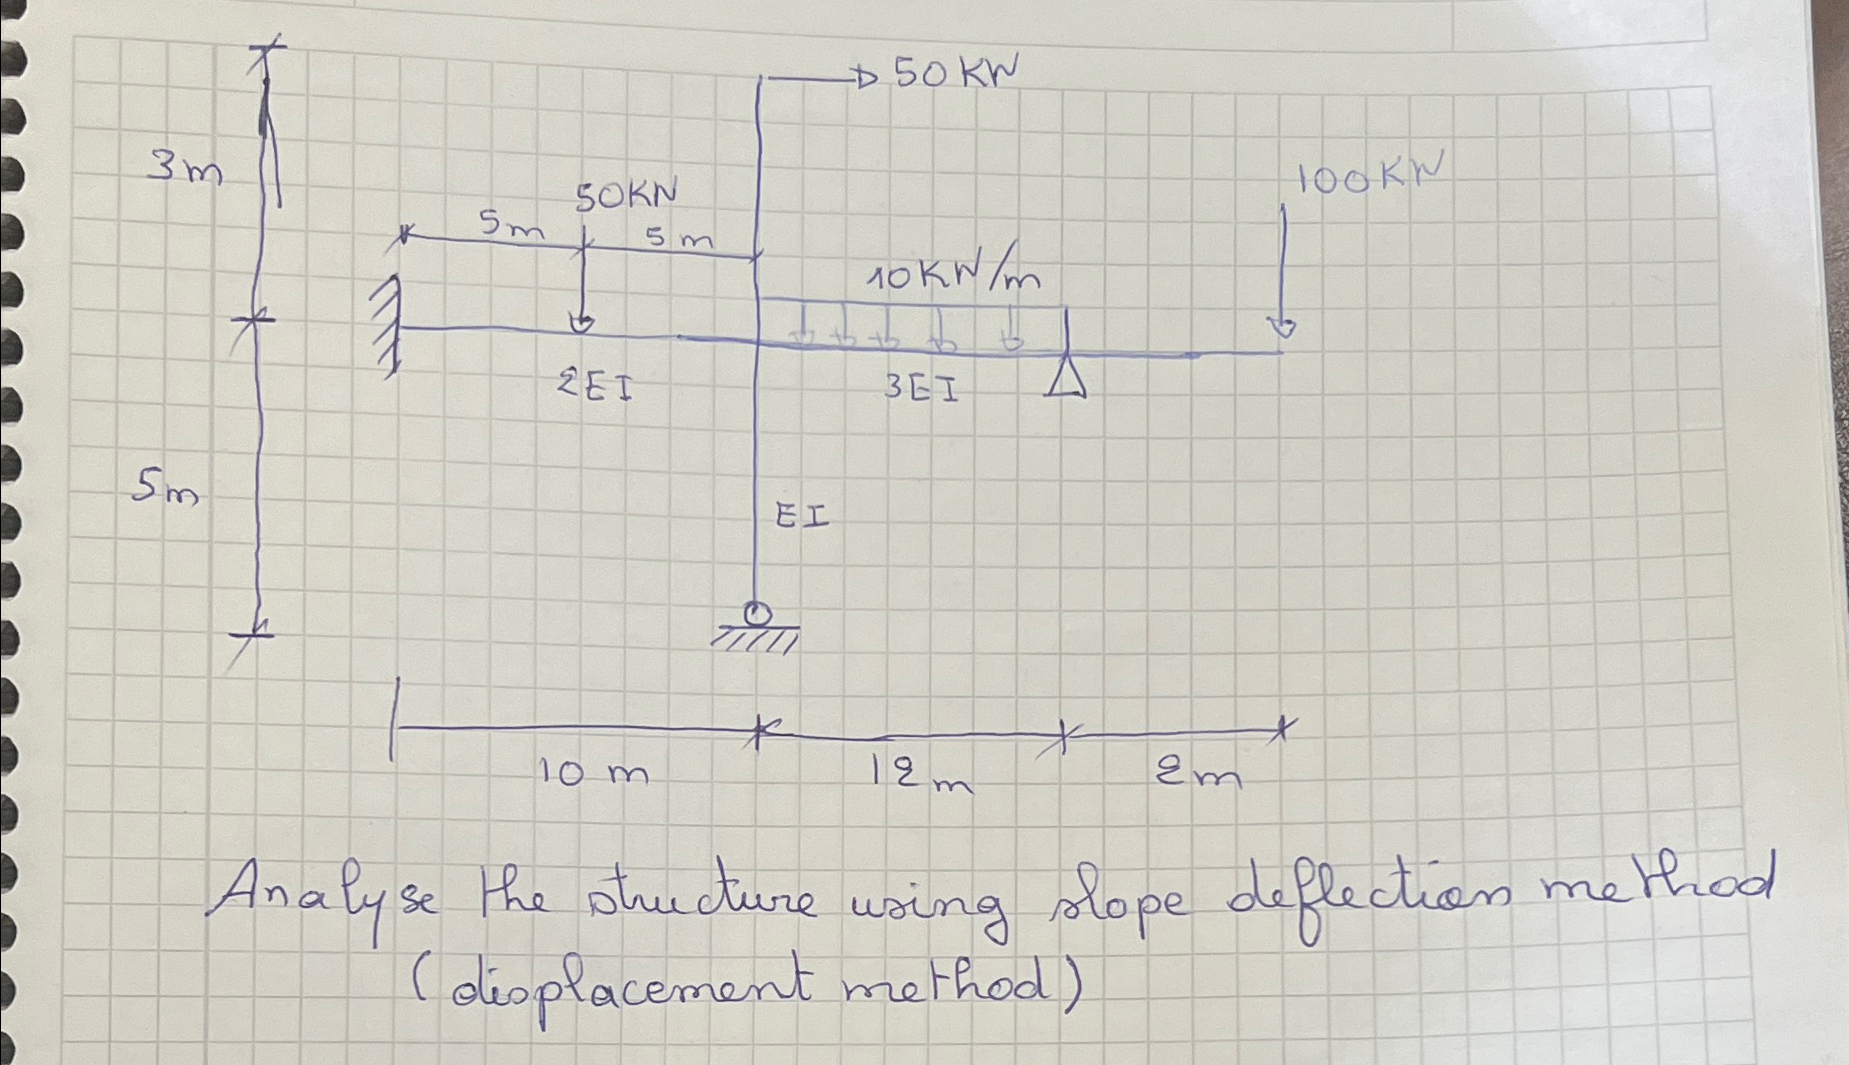 50 KN
3m
100 KN
50KN
5m
5m
10KN/m
2EI
3EI
5m
EI
10 m
12m
2m
Analyse the structure using slope deflection method
(displacement method)